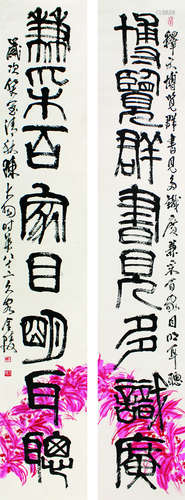 博覽群書見多識廣
釋文博覽群書見多識廣兼采百家目明耳聰
兼采百家目明耳聰
歲次癸酉清秋陳大羽時年八十二客金陵